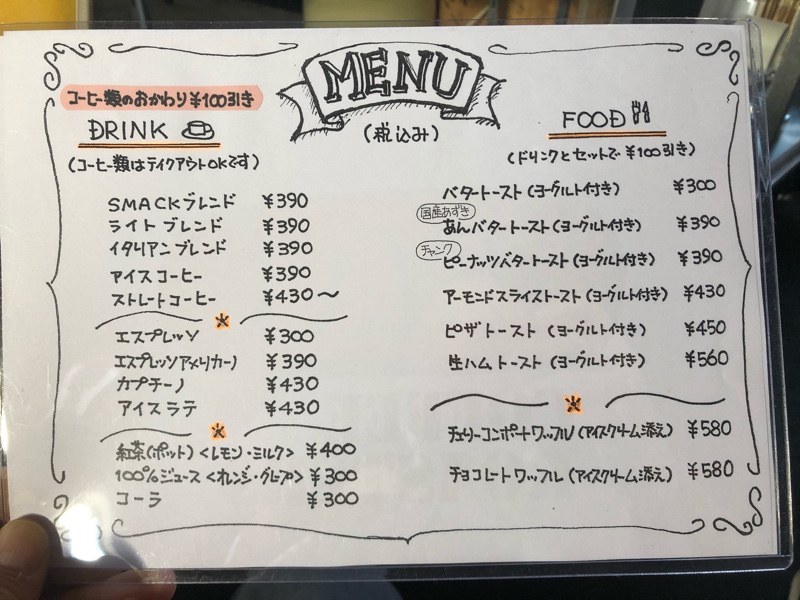 MENU
(税込み)
コーヒー類のおかわり¥100引き
DRINK
(コーヒー類はテイクアウトOKです)
SMACKブレンド ¥390
ライトブレンド ¥390
イタリアンブレンド ¥390
アイスコーヒー ¥390
ストレートコーヒー ¥430〜
エスプレッソ ¥300
エスプレッソアメリカーノ ¥390
カプチーノ ¥430
アイスラテ ¥430
紅茶(ポット)<レモン・ミルク> ¥400
100%ジュース<オレンジ・グレープ> ¥300
コーラ ¥300
FOOD
(ドリンクとセットで¥100引き)
バタートースト(ヨーグルト付き) ¥300
国産あずき
あんバタートースト(ヨーグルト付き) ¥390
チャンク
ピーナッツバタートースト(ヨーグルト付き) ¥390
アーモンドスライストースト(ヨーグルト付き) ¥430
ピザトースト(ヨーグルト付き) ¥450
生ハムトースト(ヨーグルト付き) ¥560
チェリーコンポートワッフル(アイスクリーム添え) ¥580
チョコレートワッフル(アイスクリーム添え) ¥580